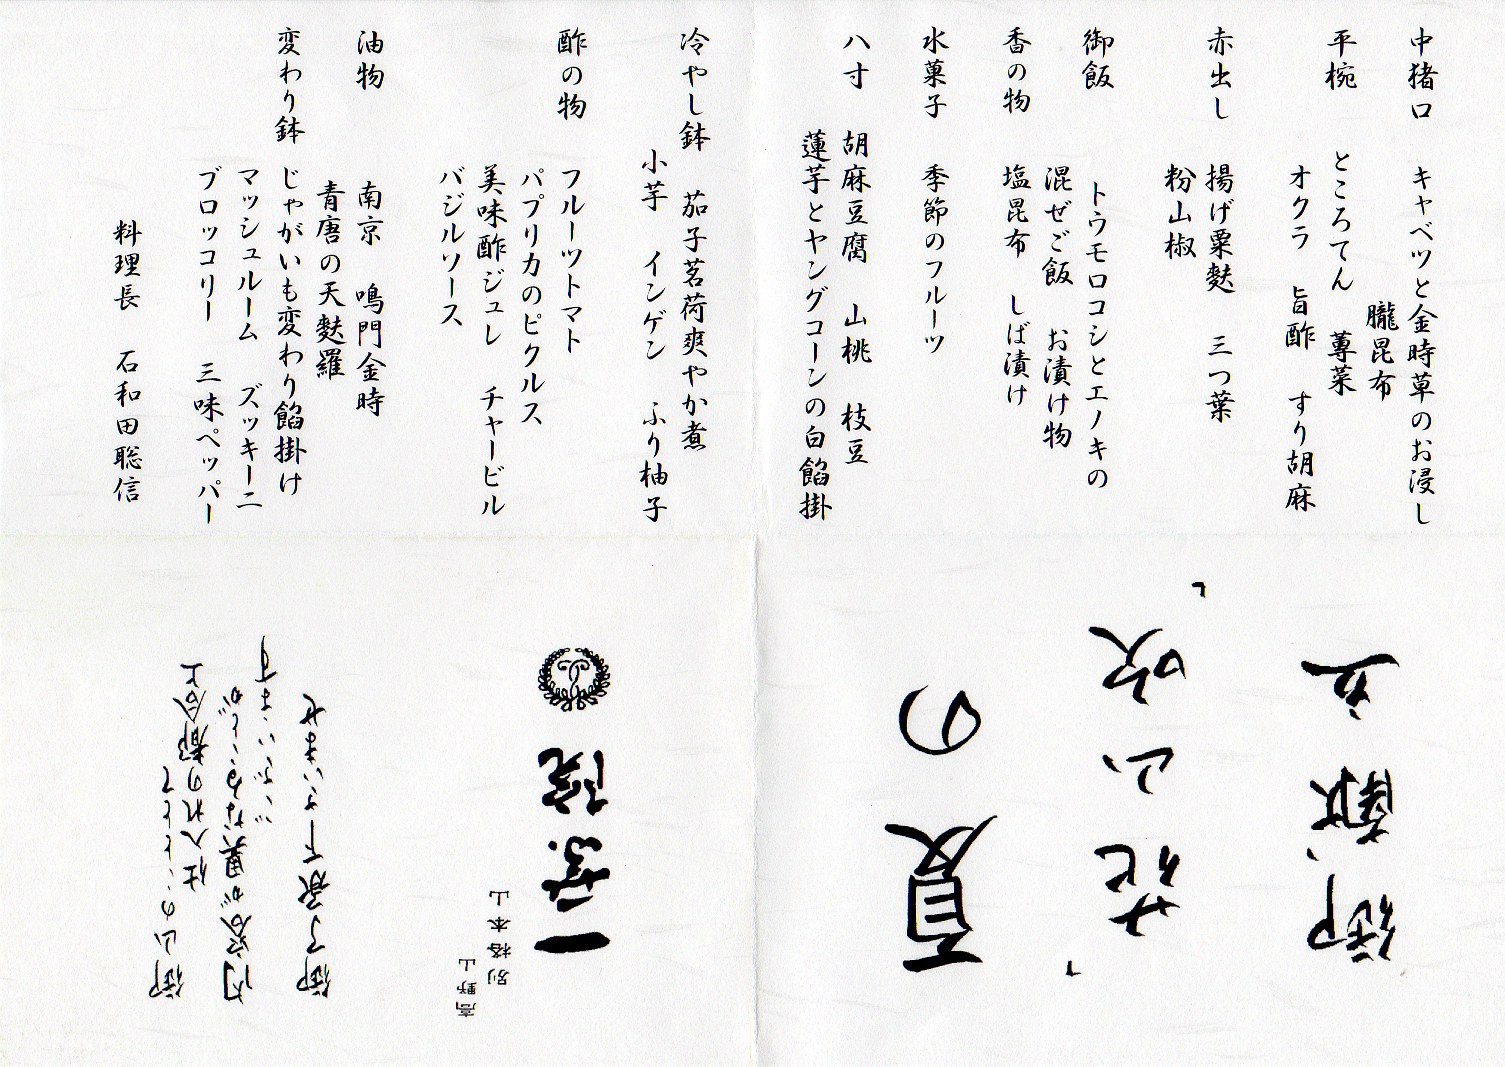 中猪口 キャベツと金時草のお浸し
朧昆布
平椀 ところてん 蓴菜
オクラ 旨酢 すり胡麻
赤出し 揚げ粟麩 三つ葉
粉山椒
御飯 トウモロコシとエノキの
混ぜご飯 お漬け物
香の物 塩昆布 しば漬け
水菓子 季節のフルーツ
八寸 胡麻豆腐 山桃 枝豆
蓮芋とヤングコーンの白餡掛
冷やし鉢 茄子茗荷爽やか煮
小芋 インゲン ふり柚子
酢の物 フルーツトマト
パプリカのピクルス
美味酢ジュレ チャービル
バジルソース
油物 南京 鳴門金時
青唐の天麩羅
変わり鉢 じゃがいも変わり餡掛け
マッシュルーム ズッキーニ
ブロッコリー 三味ペッパー
料理長 石和田聡信
御山のこととて
仕入れの都合上
内容が異なることが
ございます
御了承下さいませ
高野山
別格本山
一乗院
夏の
「花山吹」
御献立